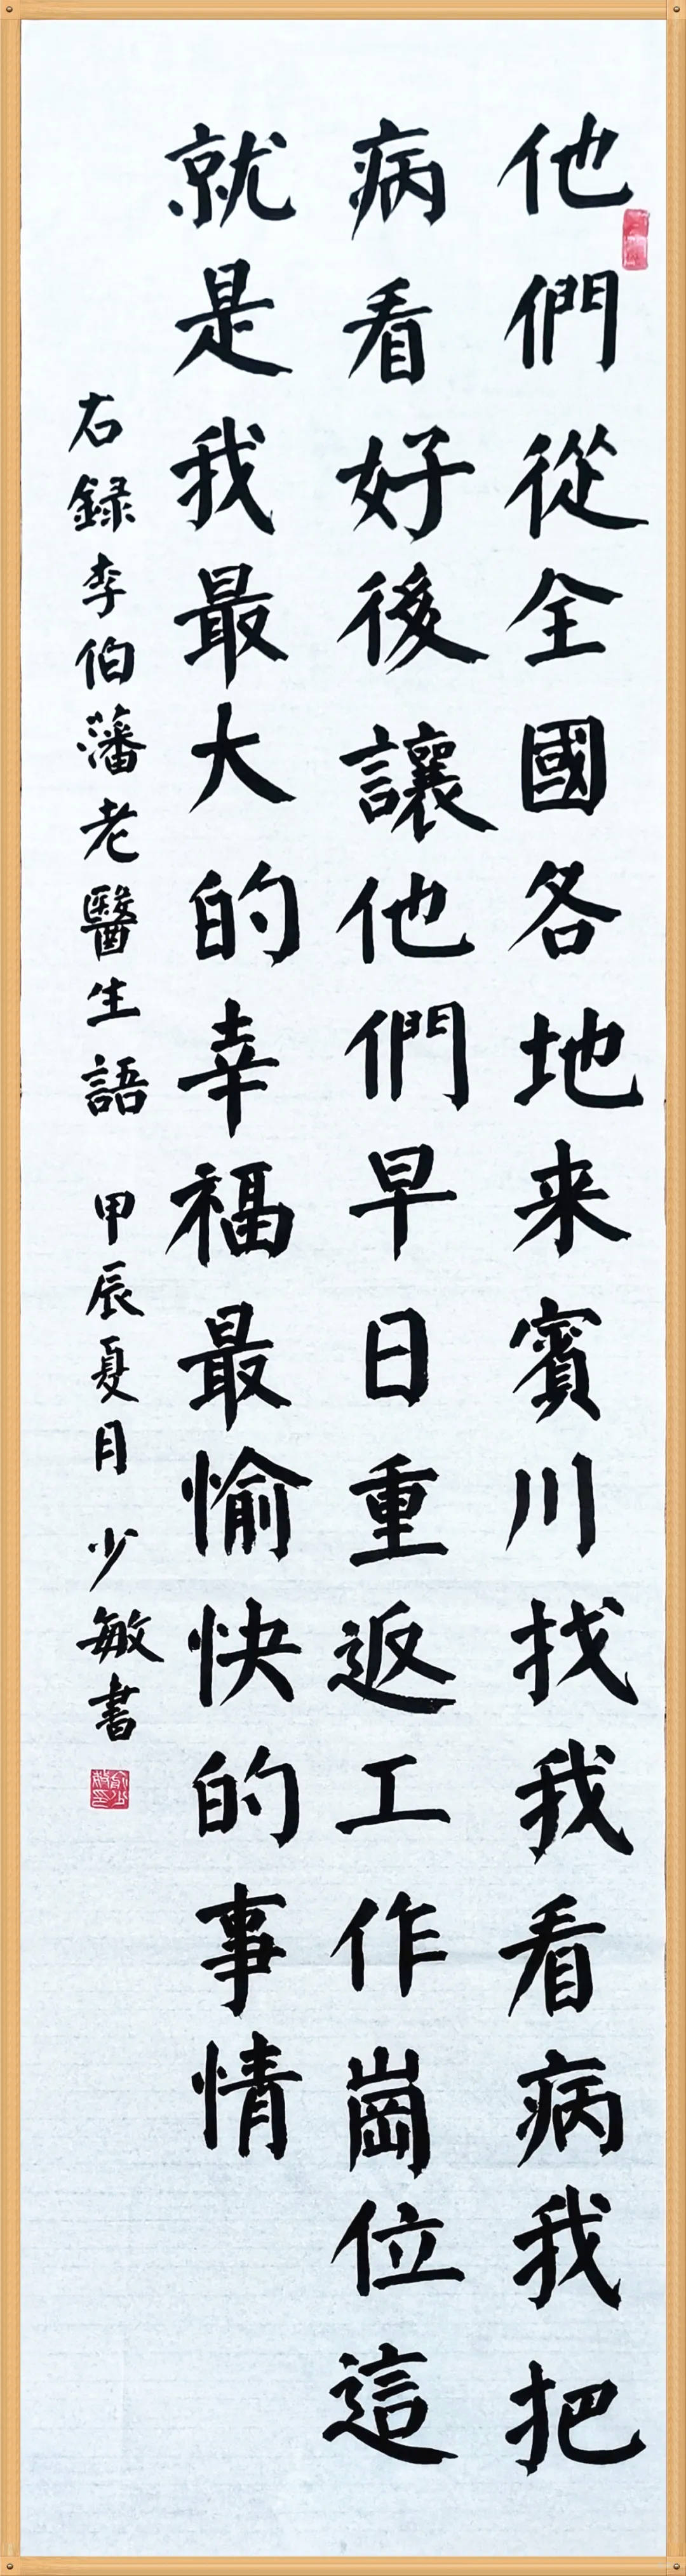 他們從全國各地来賓川找我看病我把
病看好後讓他們早日重返工作崗位這
就是我最大的幸福最愉快的事情
右録李伯藩老醫生語 甲辰夏月 少敏書